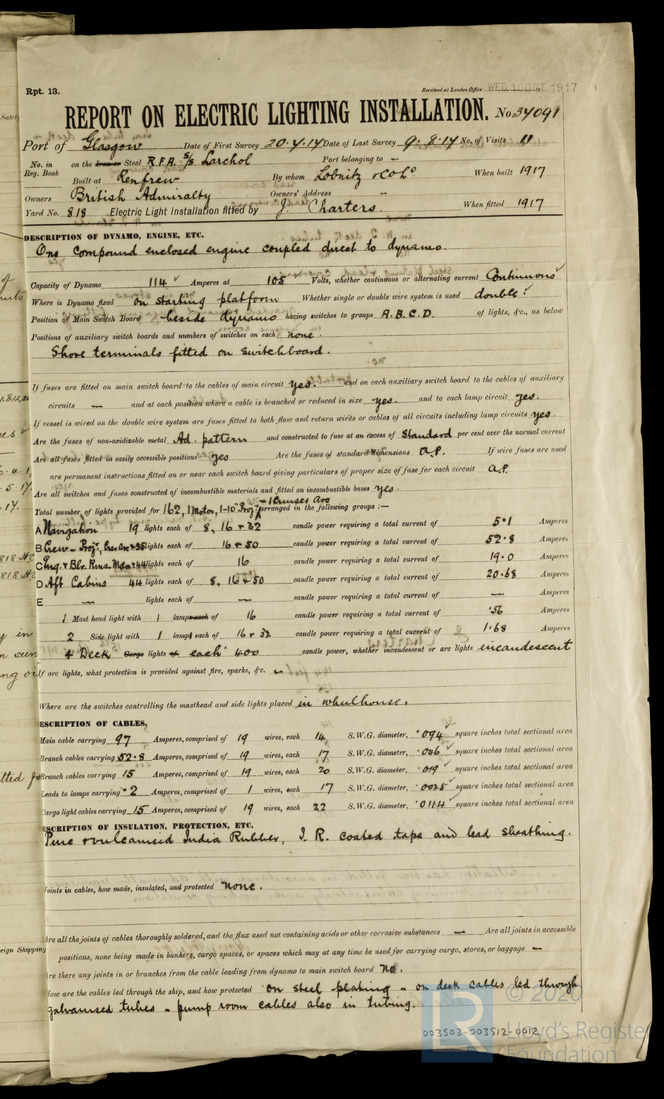 Rpt. 13.
Received at London Office WED. 10 OCT 1917
REPORT ON ELECTRIC LIGHTING INSTALLATION. No. 34091
Port of Glasgow Date of First Survey 20.4.17 Date of Last Survey 9.8.17 No. of Visits 11
No. in on the Steel R.F.A. S/S Larchol Port belonging to –
Reg. Book Built at Renfrew By whom Lobnitz & Co Lo When built 1917
Owners British Admiralty Owners' Address –
Yard No. 818 Electric Light Installation fitted by J. Charters. When fitted 1917
DESCRIPTION OF DYNAMO, ENGINE, ETC.
One compound enclosed engine coupled direct to dynamo.
Capacity of Dynamo 114 Amperes at 105 Volts, whether continuous or alternating current Continuous
Where is Dynamo fixed on starting platform Whether single or double wire system is used double.
Position of Main Switch Board beside dynamo having switches to groups A.B.C.D. of lights, &c., as below
Positions of auxiliary switch boards and numbers of switches on each none.
Shore terminals fitted on switchboard.
If fuses are fitted on main switch board to the cables of main circuit yes. and on each auxiliary switch board to the cables of auxiliary
circuits — and at each position where a cable is branched or reduced in size yes. and to each lamp circuit yes.
If vessel is wired on the double wire system are fuses fitted to both flow and return wires or cables of all circuits including lamp circuits yes.
Are the fuses of non-oxidizable metal Ad. pattern and constructed to fuse at an excess of Standard per cent over the normal current
Are all fuses fitted in easily accessible positions yes Are the fuses of standard dimensions a.p. If wire fuses are used
are permanent instructions fitted on or near each switch board giving particulars of proper size of fuse for each circuit a.p.
Are all switches and fuses constructed of incombustible materials and fitted on incombustible bases yes.
Total number of lights provided for 162, 1 Motor, 1-10" Proj. arranged in the following groups :—
A Navigation 19 lights each of 8, 16 + 32 candle power requiring a total current of 5.1 Amperes
B lights each of 16 + 50 candle power requiring a total current of 52.8 Amperes
C Eng. & Blr. Rms. Motor + 44 lights each of 16 candle power requiring a total current of 19.0 Amperes
D Aft Cabins 44 lights each of 8, 16 + 50 candle power requiring a total current of 20.68 Amperes
E — lights each of — candle power requiring a total current of — Amperes
1 Mast head light with 1 lamp each of 16 candle power requiring a total current of .56 Amperes
2 Side light with 1 lamp each of 16 + 32 candle power requiring a total current of 1.68 Amperes
4 Deck Cargo lights of each 400 candle power, whether incandescent or arc lights incandescent
If arc lights, what protection is provided against fire, sparks, &c. –
Where are the switches controlling the masthead and side lights placed in wheelhouse.
ESCRIPTION OF CABLES.
Main cable carrying 97 Amperes, comprised of 19 wires, each 14 S.W.G. diameter, .094 square inches total sectional area
Branch cables carrying 52.8 Amperes, comprised of 19 wires, each 17 S.W.G. diameter, .046 square inches total sectional area
Branch cables carrying 15 Amperes, comprised of 19 wires, each 20 S.W.G. diameter, .019 square inches total sectional area
Leads to lamps carrying .2 Amperes, comprised of 1 wires, each 17 S.W.G. diameter, .0025 square inches total sectional area
Cargo light cables carrying 15 Amperes, comprised of 19 wires, each 22 S.W.G. diameter, .0114 square inches total sectional area
ESCRIPTION OF INSULATION, PROTECTION, ETC.
Pure & vulcanised India Rubber, I.R. coated tape and lead sheathing.
Joints in cables, how made, insulated, and protected none.
Are all the joints of cables thoroughly soldered, and the flux used not containing acids or other corrosive substances — Are all joints in accessible
positions, none being made in bunkers, cargo spaces, or spaces which may at any time be used for carrying cargo, stores, or baggage —
Are there any joints in or branches from the cable leading from dynamo to main switch board no.
How are the cables led through the ship, and how protected on steel plating – on deck cables led through
galvanised tubes – pump room cables also in tubing.
003503-003512-0012
© 2020
Lloyd's Register
Foundation